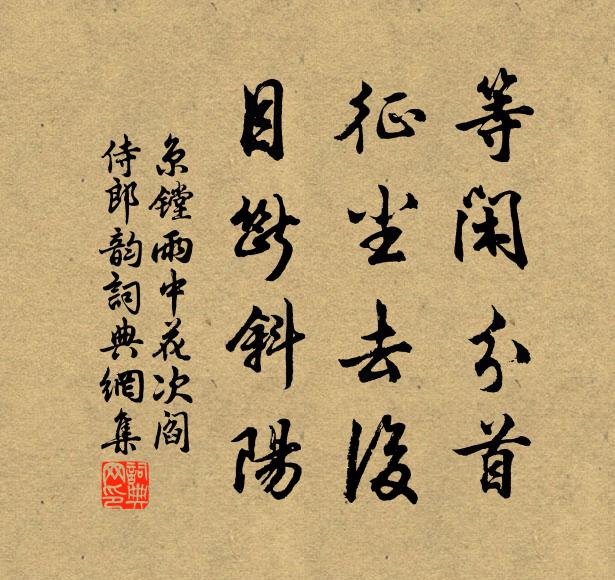 等閑分首
征尘去後
目断斜陽
京鏜雨中花次阎
侍郎韵詞典網集
詞典网印